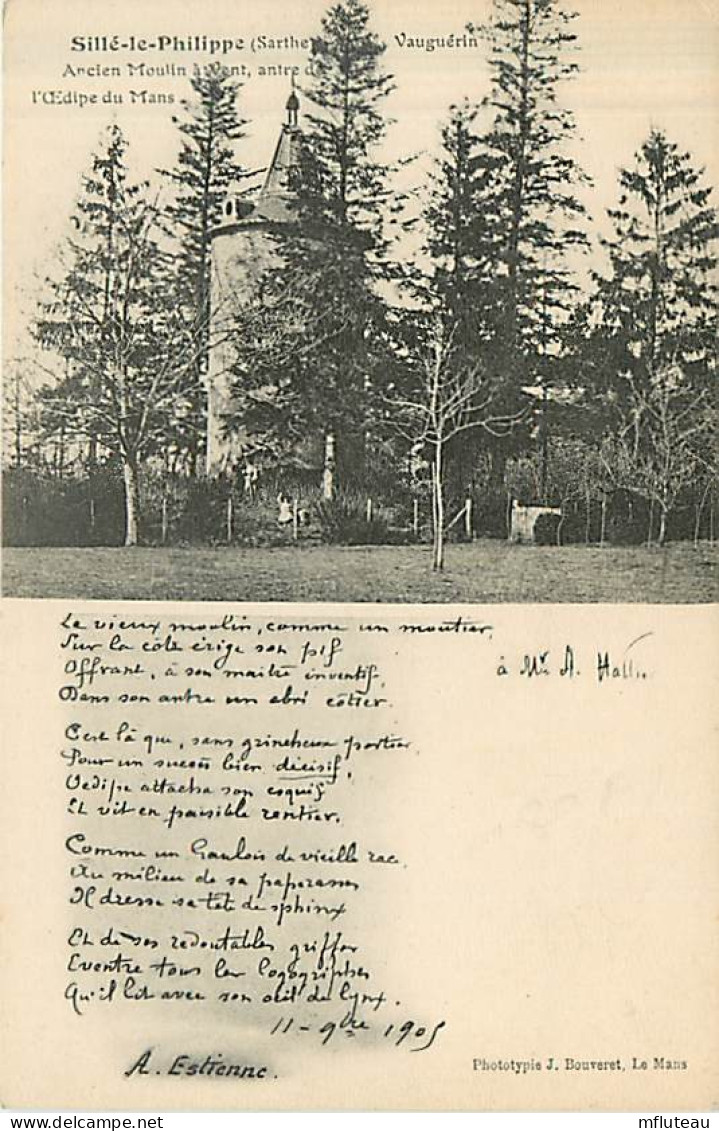 Sillé-le-Philippe (Sarthe) Vauguérin
Ancien Moulin à Vent, antre de
l'Œdipe du Mans
Le vieux moulin, comme un moutier,
Sur la côte érige son pif
Offrant, à son maître inventif,
Dans son antre un abri côtier.
à Mr A. 
C'est là que, sans grincheux portier,
Pour un succès bien décisif,
Oedipe attacha son esquif
Et vit en paisible rentier.
Comme un Gaulois de vieille race
Au milieu de sa paperasse
Il dresse sa tête de sphinx
Et de ses redoutables griffes
Eventre tous les logogriphes
Qu'il lit avec son œil de lynx.
11 - 9bre 1905
A. Estienne.
Phototypie J. Bouveret, Le Mans
mfluteau